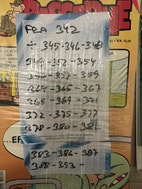 FRA 342
÷ 345-346-348
349-352-354
356-357-359
364-365-367
368-369-371
372-375-377
378-380-381
383-386-387
388-353-